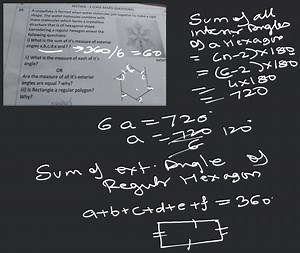 SECTION - E (CASE BASED QUESTIONS)
A snowflake is formed when water molecules join together to make a rigid
shape. The water molecules combine with
more molecules which forms a crystalline
structure that is of hexagonal shape.
Considering a regular hexagon answer the
following questions:
i) What is the sum of it's measure of exterior
angles a,b,c,d,e and f → 360/6 = 60
ii) What is the measure of each of it's
angle?
OR
Are the measure of all it's exterior
angles are equal ? why?
iii) Is Rectangle a regular polygon?
Why?
Sum of all
interior Angles
of a Hexagon
= (n-2)×180
= (6-2)×180
= 4×180
= 720
6 a = 720°
a = 720 120°
6
Sum of ext. Angle of
Regular Hexagon
a+b+c+d+e+f = 360°